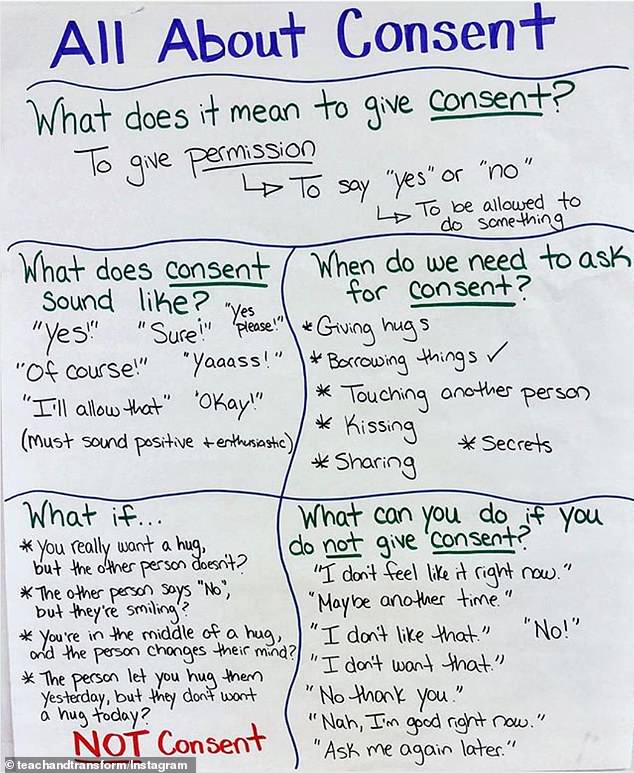 All About Consent
What does it mean to give consent?
To give permission
↳ To say "yes" or "no"
↳ To be allowed to
do something
What does consent
sound like?
"Yes!" "Sure!" "Yes please!"
"Of course!" "Yaaass!"
"I'll allow that" "Okay!"
(Must sound positive + enthusiastic)
When do we need to ask
for consent?
* Giving hugs
* Borrowing things ✓
* Touching another person
* Kissing
* Secrets
* Sharing
What if...
* You really want a hug,
but the other person doesn't?
* The other person says "No",
but they're smiling?
* You're in the middle of a hug,
and the person changes their mind?
* The person let you hug them
yesterday, but they don't want
a hug today?
NOT Consent
What can you do if you
do not give consent?
"I don't feel like it right now."
"Maybe another time."
"I don't like that." "No!"
"I don't want that."
"No thank you."
"Nah, I'm good right now."
"Ask me again later."
© teachandtransform/Instagram